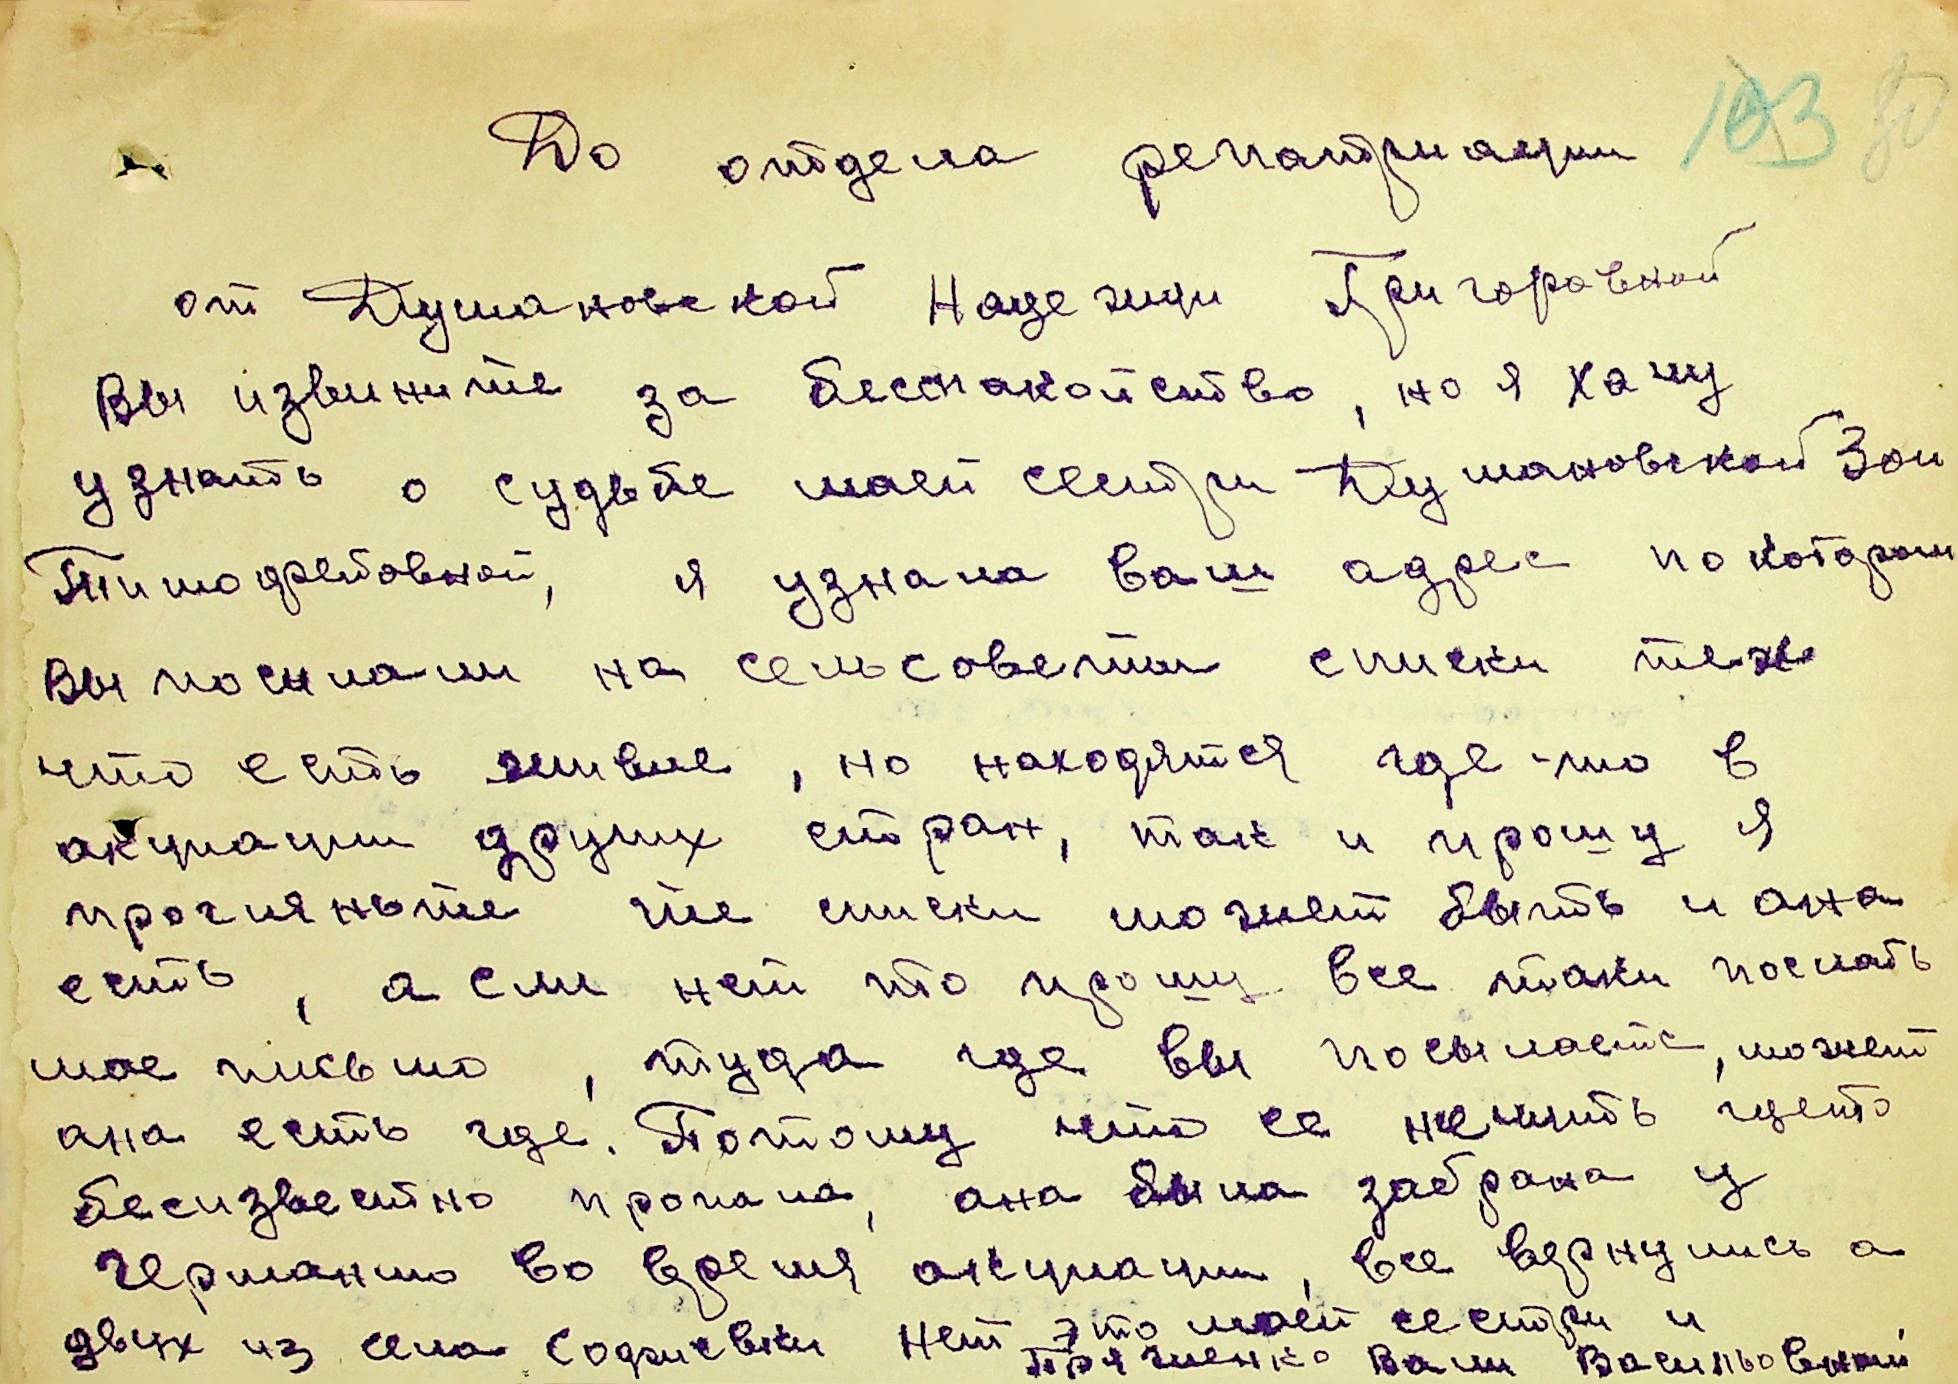 103 80
До отдела репатриации
от Душановской Надежди Григоровной
Вы извините за беспакойство, но я хачу
узнать о судьбе моей сестри Душановской Зои
Тимофеёвной, я узнала ваш адрес по котором
вы посилали на сельсовети списки тех
что есть живие, но находятся где-то в
акупации других стран, так и прошу я
прогляньте те списки может быть и ана
есть, а если нет то прошу все таки послать
мое письмо, туда где вы посылаете, может
ана есть где. Потому что ее нечить гдето
бесизвестно пропала, ана была забрана у
Германию во время акупации, все вернулись а
двух из села Софиевки нет это моей сестри и
Вали Васильовной